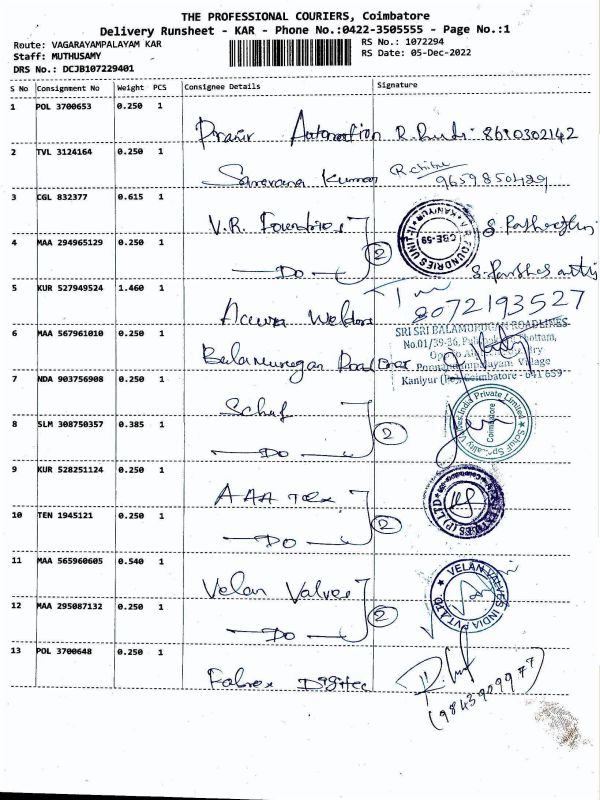 THE PROFESSIONAL COURIERS, Coimbatore
Delivery Runsheet - KAR - Phone No.:0422-3505555 - Page No.:1
Route: VAGARAYAMPALAYAM KAR
RS No.: 1072294
Staff: MUTHUSAMY
RS Date: 05-Dec-2022
DRS No.: DCJB107229401
S No Consignment No Weight PCS Consignee Details Signature
1 POL 3700653 0.250 1
Automation 8610302142
2 TVL 3124164 0.250 1
Saravana Kumar
9659850489
3 CGL 832377 0.615 1
V.R. Foundries
4 MAA 294965129 0.250 1
Do 2
CBE-59
5 KUR 527949524 1.460 1
Accura Welders 8072193527
6 MAA 567961010 0.250 1
Balamurugan
SRI SRI BALAMURUGAN ROADLINES
No.01/39-36,
Village
Kaniyur Coimbatore - 641 659
7 NDA 903756908 0.250 1
Schuf
8 SLM 308750357 0.385 1
Do 2
India Private Limited
Coimbatore
9 KUR 528251124 0.250 1
AAA
10 TEN 1945121 0.250 1
Do 2
11 MAA 565960605 0.540 1
Velan Valves
12 MAA 295087132 0.250 1
Do 2
VELAN VALVES INDIA PVT.LTD.
13 POL 3700648 0.250 1